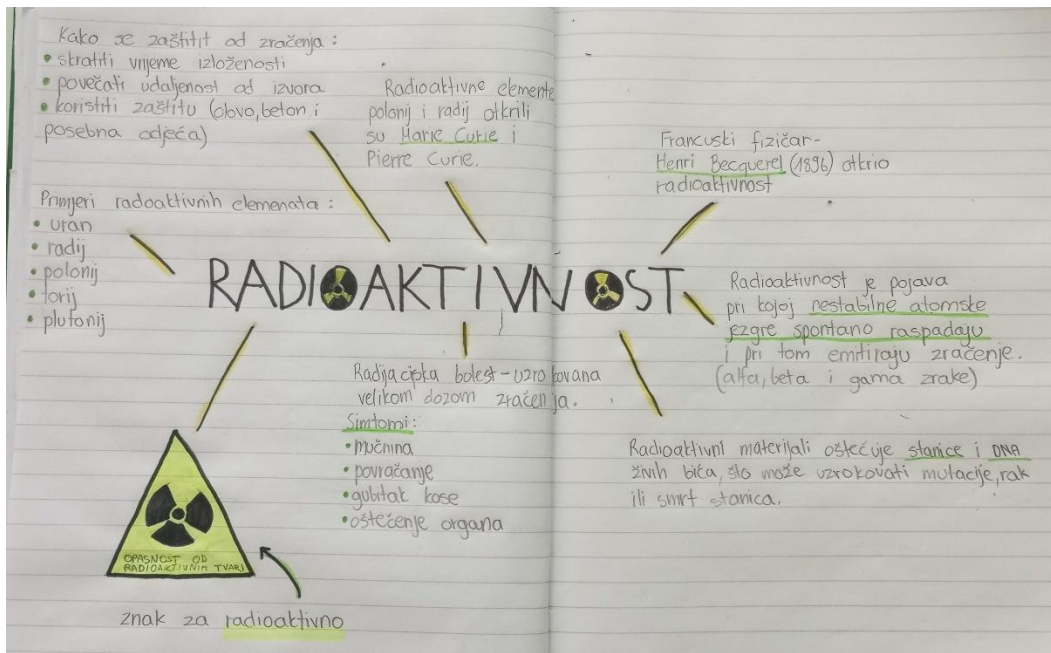 Kako se zaštitit od zračenja :
• skratiti vrijeme izloženosti
• povečati udaljenost od izvora
• koristiti zaštitu (olovo, beton i
posebna odječa)
Radioaktivne elemente
polonij i radij otkrili
su Marie Curie i
Pierre Curie.
Francuski fizičar-
Henri Becquerel (1896) otkrio
radioaktivnost
Primjeri radoaktivnih elemenata :
• uran
• radij
• polonij
• torij
• plutonij
RADIOAKTIVNOST
Radioaktivnost je pojava
pri kojoj nestabilne atomske
jezgre spontano raspadaju
i pri tom emitiraju zračenje.
(alfa, beta i gama zrake)
Radijacijska bolest - uzrokovana
velikom dozom zračenja.
Simtomi:
• mučnina
• povračanje
• gubitak kose
• oštečenje organa
Radioaktivni materijali oštećuje stanice i DNA
živih bića, što može uzrokovati mutacije, rak
ili smrt stanica.
OPASNOST OD
RADIOAKTIVNIH TVARI
znak za radioaktivno